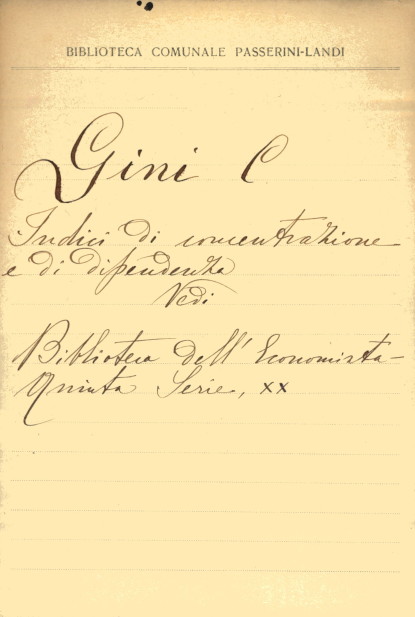 BIBLIOTECA COMUNALE PASSERINI-LANDI
Gini C
Indici di concentrazione
e di dipendenza
Vedi
Biblioteca dell'Economista-
Quinta Serie, XX